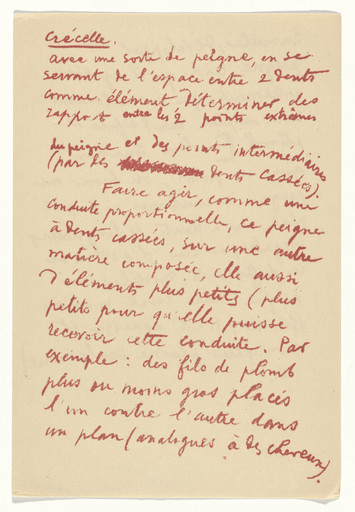 Crécelle.
avec une sorte de peigne, en se
servant de l'espace entre 2 dents
comme élément, déterminer des
rapports entre les 2 points extrêmes
du peigne et des points intermédiaires
(par les dents cassées).
Faire agir, comme une
conduite proportionnelle, ce peigne
à dents cassées, sur une autre
matière composée, elle aussi
d'éléments plus petits (plus
petits pour qu'elle puisse
recevoir cette conduite. Par
exemple : des fils de plomb
plus ou moins gros placés
l'un contre l'autre dans
un plan (analogues à des cheveux).